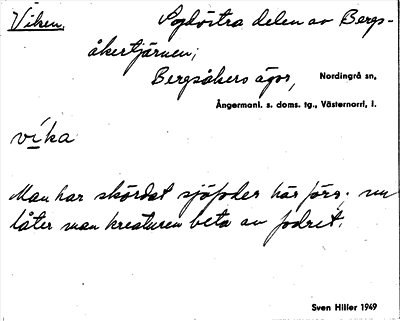 Viken, Sydöstra delen av Bergs-
åkertjärnen;
Bergsåkers ägor, Nordingrå sn,
Ångermanl. s. doms. tg., Västernorrl, l.
vika
Man har skördat sjöfoder här förs; nu
låter man kreaturen beta av fodret.
Sven Hiller 1949